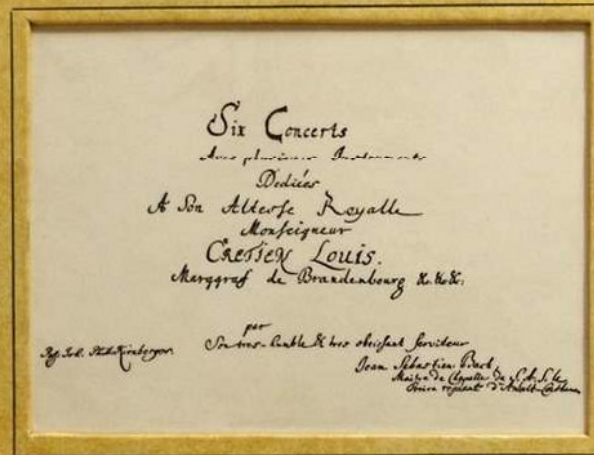 Six Concerts
Avec plusieurs Instruments
Dediées
A Son Altesse Royalle
Monseigneur
CRETIEN Louis.
Marggraf de Brandenbourg &c. &c. &c:
par
Son tres-humble & tres obeissant serviteur
Jean Sebastien Bach,
Maitre de Chapelle de S. A. S. le
Prince regnant d'Anhalt-Coethen
Kirnberger.